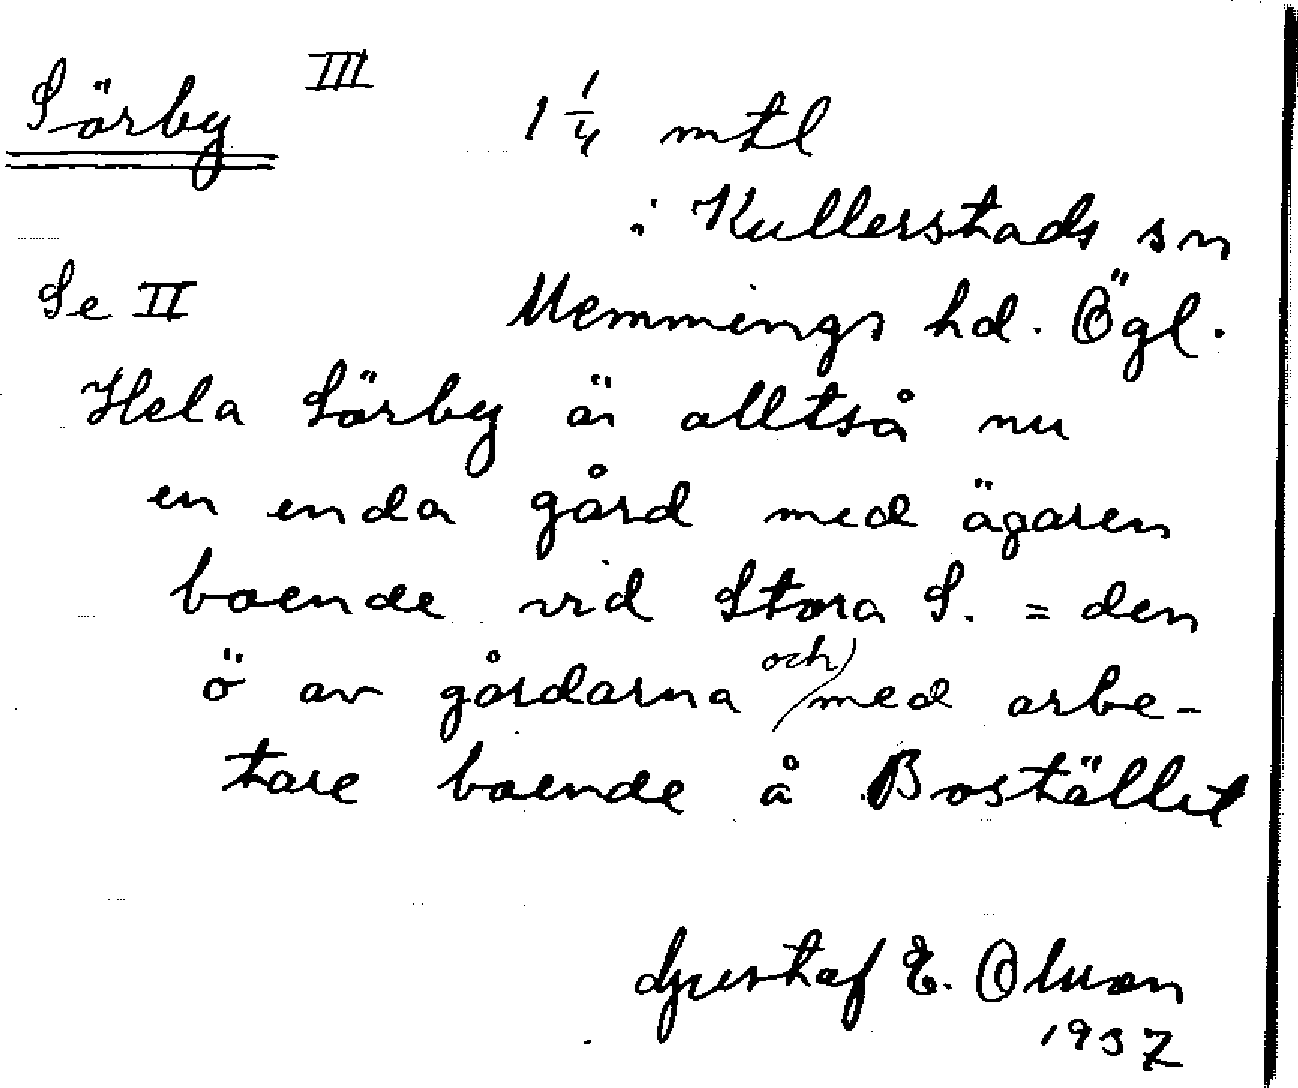 Sörby III
1 1/4 mtl
i Kullerstads sn
Se II Memmings hd. Ögl.
Hela Sörby är alltså nu
en enda gård med ägaren
boende vid Stora S. = den
ö av gårdarna och med arbe-
tare boende å Bostället
Gustaf E. Olson
1937